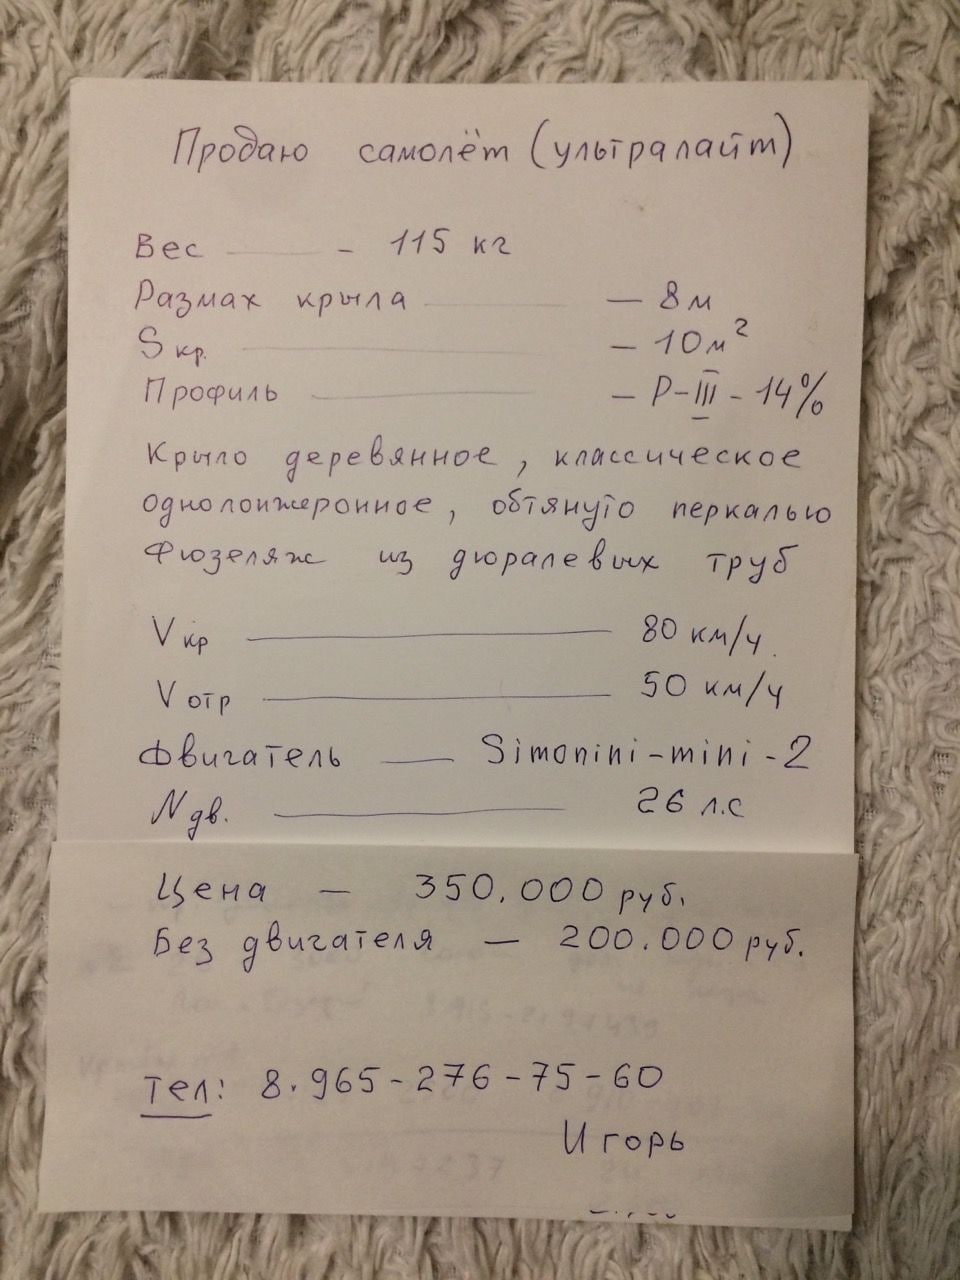 Продаю самолёт (ультралайт)
Вес — 115 кг
Размах крыла — 8 м
S кр. — 10 м²
Профиль — Р-III - 14%
Крыло деревянное, классическое
однолонжеронное, обтянуто перкалью
Фюзеляж из дюралевых труб
V кр — 80 км/ч.
V отр — 50 км/ч
Двигатель — Simonini-mini-2
N дв. — 26 л.с
Цена — 350.000 руб.
Без двигателя — 200.000 руб.
Тел: 8.965-276-75-60
Игорь